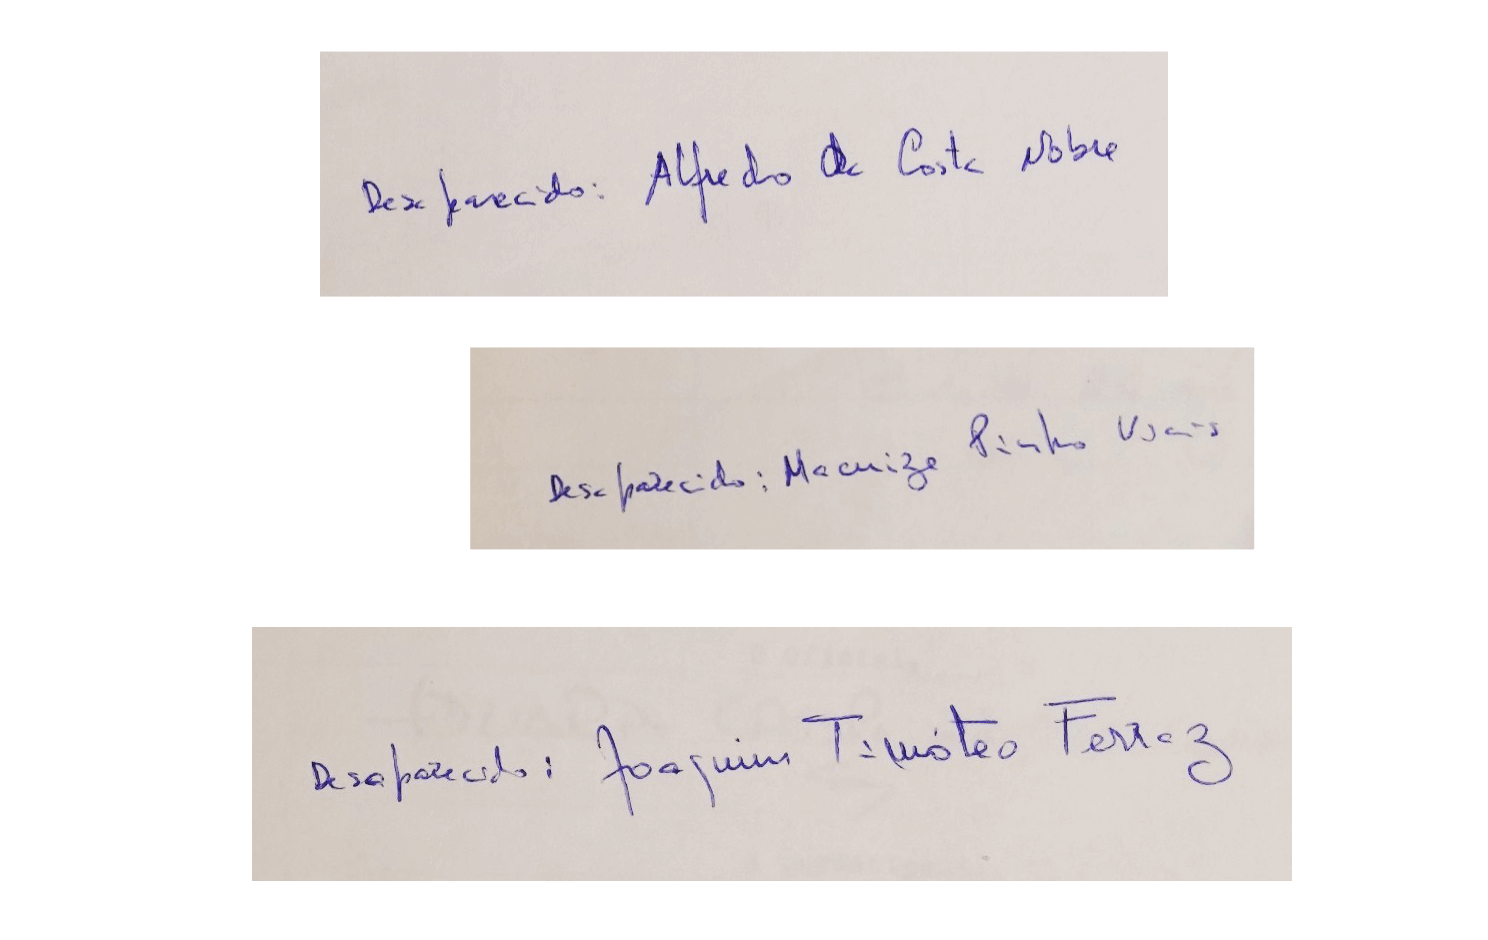 Desaparecido: Alfredo da Costa Nobre
Desaparecido: Pinho
Desaparecido: Joaquim Timóteo Ferraz